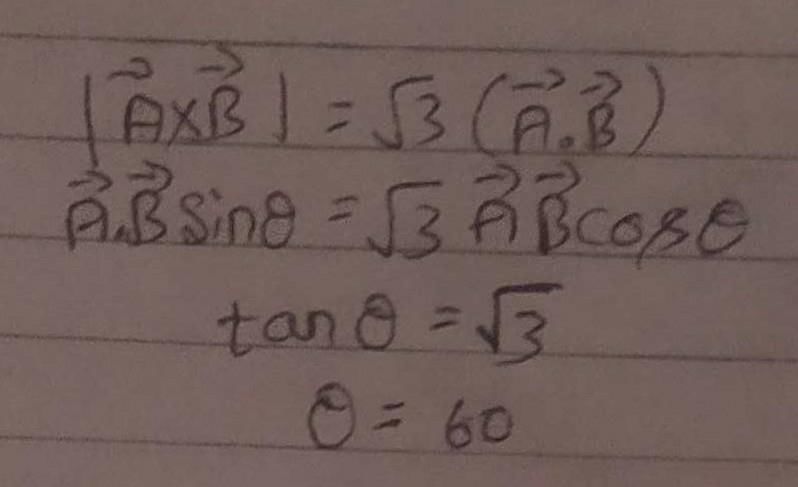 |A⃗×B⃗| = √3 (A⃗.B⃗)
A⃗.B⃗ sinθ = √3 A⃗ B⃗ cosθ
tan θ = √3
θ = 60